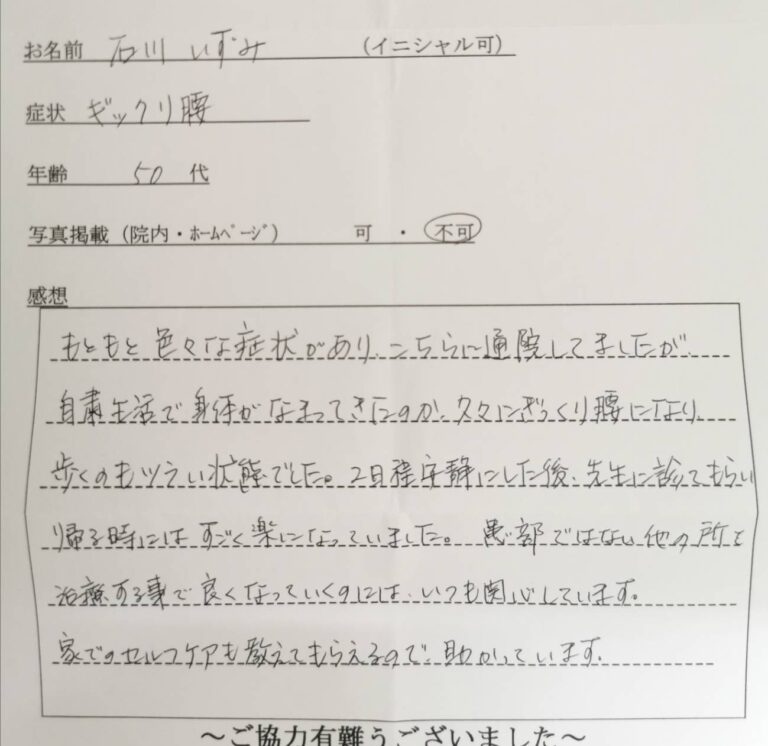 お名前 石川 いずみ (イニシャル可)
症状 ギックリ腰
年齢 50 代
写真掲載(院内・ホームページ) 可 ・ 不可
感想
もともと色々な症状があり、こちらに通院してましたが、
自粛生活で身体がなまってきたのか、久々にぎっくり腰になり、
歩くのもツラい状態でした。2日程安静にした後、先生に診てもらい
帰る時にはすごく楽になっていました。患部ではない他の所を
治療する事で良くなっていくのには、いつも関心しています。
家でのセルフケアも教えてもらえるので、助かっています。
〜ご協力有難うございました〜